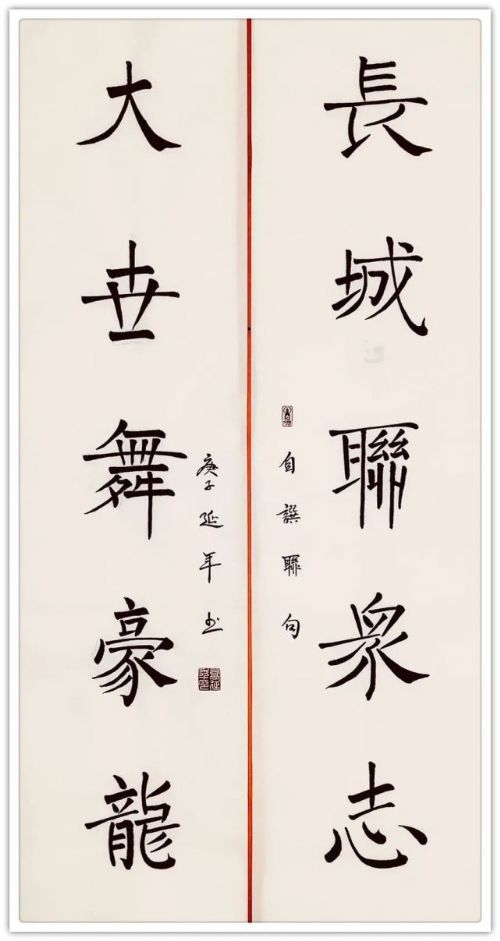 長城聯衆志
自譔聯句
大世舞豪龍
庚子延年书